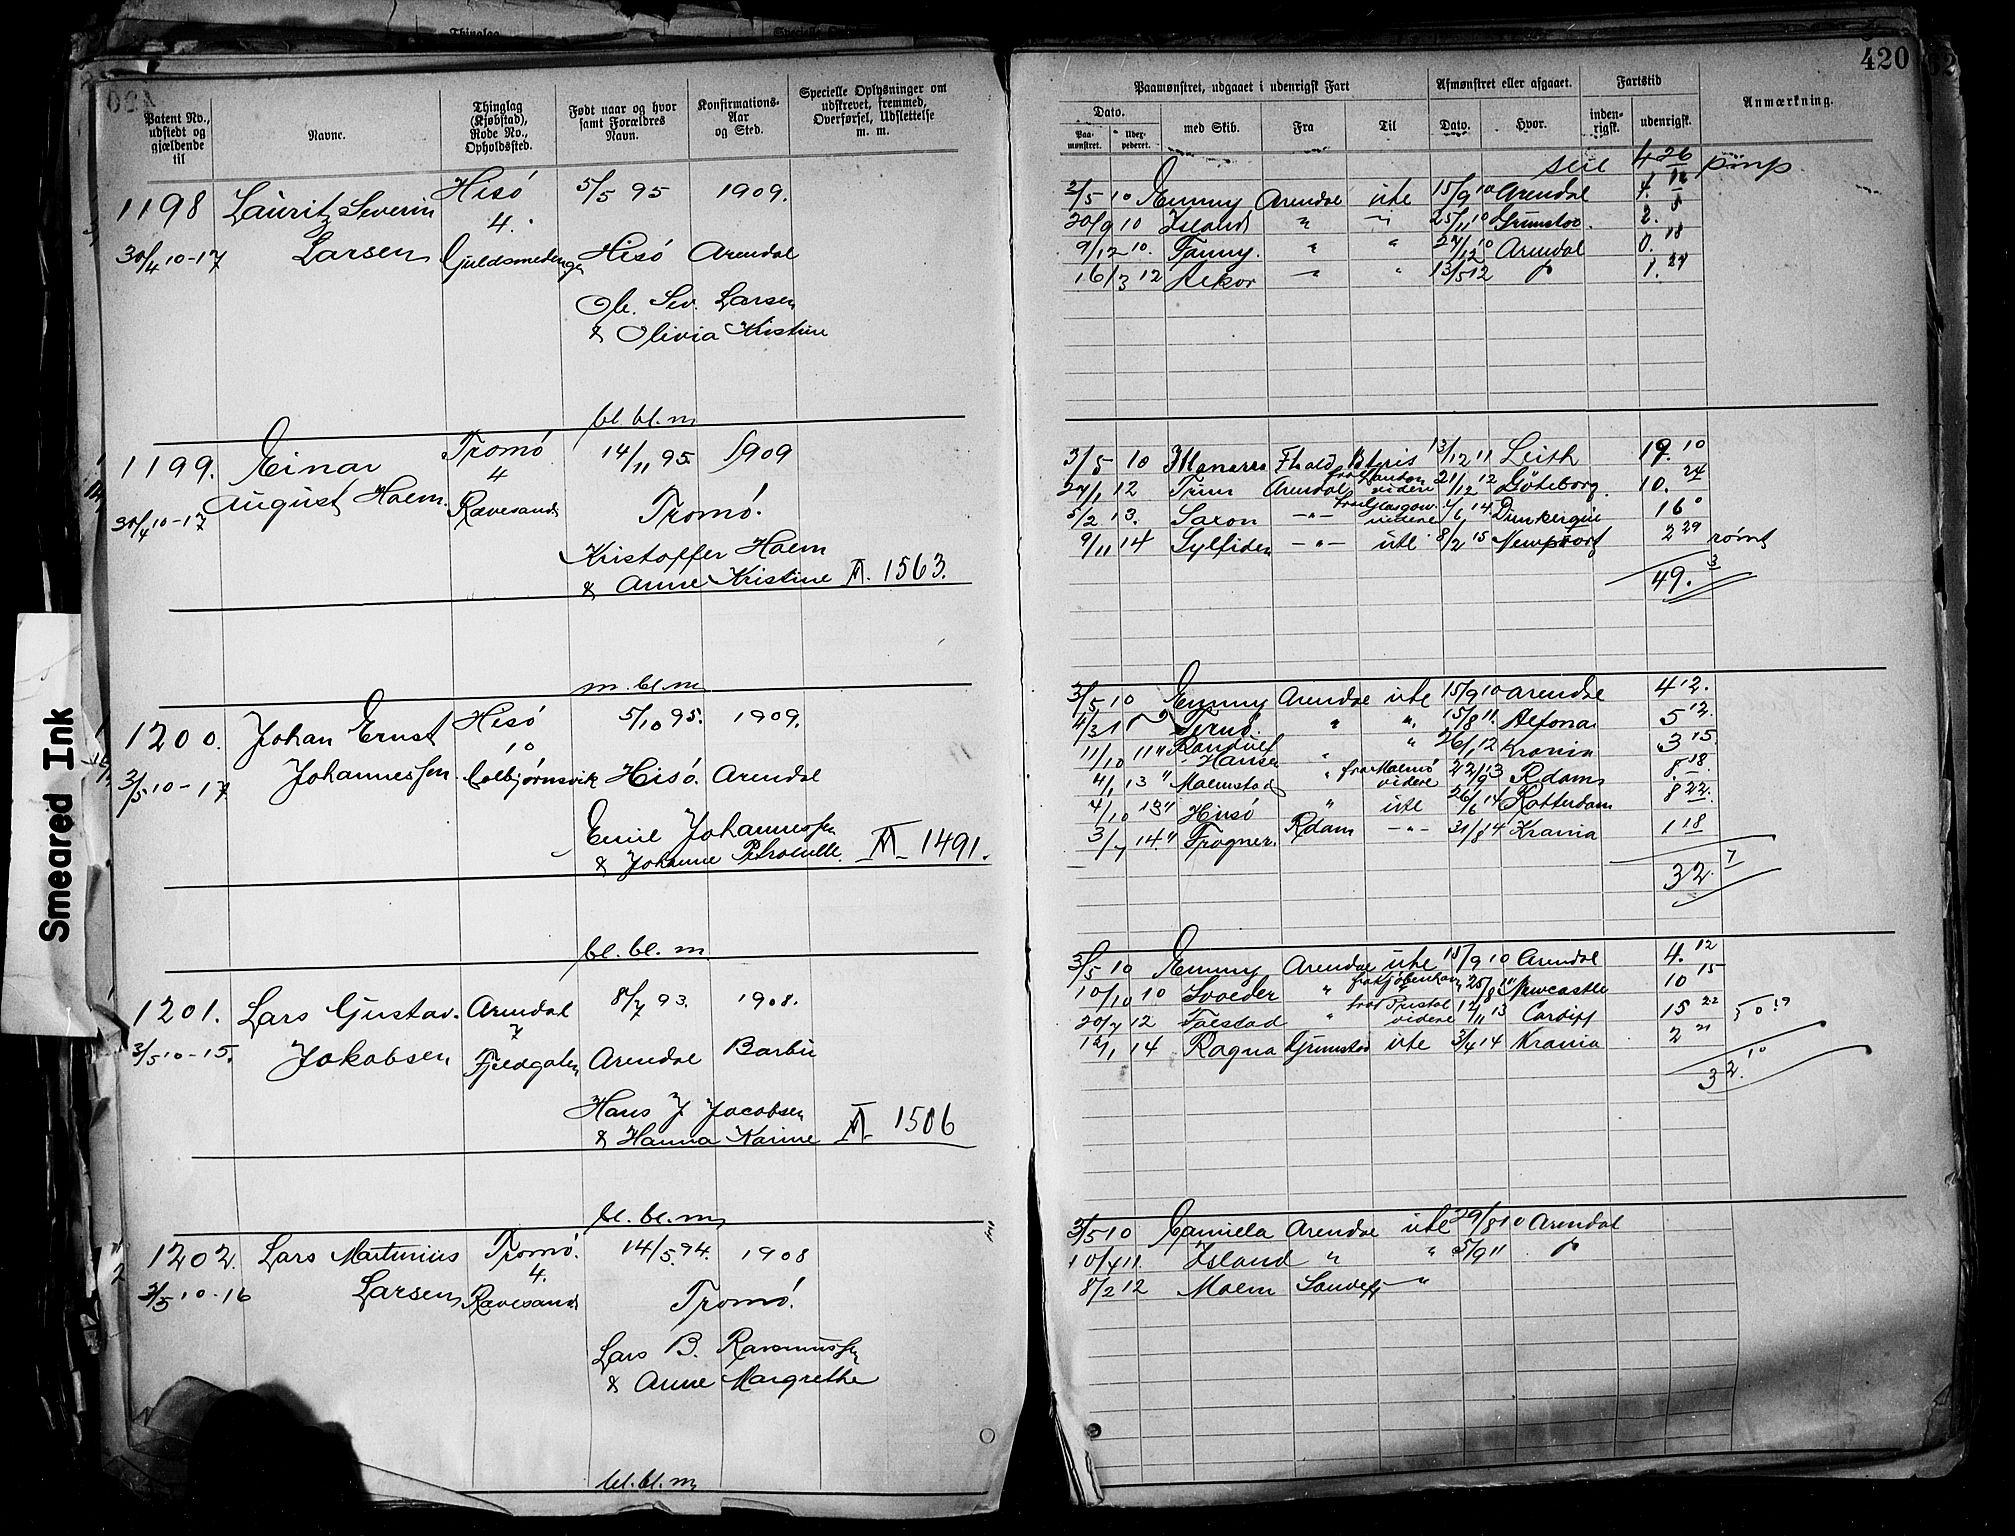 420
Patent No., udstedt og gjældende til
Navne.
Thinglag (Kjøbstad), Rode No., Opholdssted.
Født naar og hvor samt Forældres Navn.
Konfirmations-Aar og Sted.
Specielle Oplysninger om udskrevet, fremmed, Overførsel, Udslettelse m. m.
1198 Lauritz Severin Hisö 5/5 95 1909.
4.
30/4 10-17 Larsen Guldsmedengen Hisö Arendal
Ole Sev. Larsen
& Olivia Kristine
bl. bl. m
1199. Einar Tromö 14/11 95. 1909
4
August Holm. Ravesand
30/4 10-17 Tromö.
Kristoffer Holm
& Anne Kristine 1563.
m. bl. m
1200. Johan Ernst Hisö 5/10 95. 1909.
10
3/5 10-17 Johannessen Colbjørnsvik Hisö. Arendal
Emil Johannessen
& Johanne 1491.
bl. bl. m
1201. Lars Gustav. Arendal 8/7 93. 1908.
7
3/5 10-15. Jakobsen Fjeldgaten Arendal Barbu
Hans J Jacobsen
& Hanna Karine 1506
bl. bl. m
1202. Lars Martinius Tromö. 14/5 94. 1908
4.
3/5 10-16 Larsen Ravesand Tromö.
Lars B. Rasmussen
& Anne Margrethe
bl. bl. m
Smeared Ink
Paamønstret, udgaaet i udenrigsk Fart
Afmønstret eller afgaaet.
Fartstid
Anmærkning.
Dato.
Paamønstret. Udexpederet. med Skib. Fra Til Dato. Hvor. indenrigsk. udenrigsk.
4 26
2/5 10 Emmy Arendal ute 15/9 10 Arendal 4. 12
20/9 10 Island " " 25/11 10 Grimstad. 2. 5
9/12 10. Fanny. " " 27/12 10 Arendal 0. 18
16/3 12 Rekor " " 13/5 12 1. 27
3/5 10 13/12 11 Leith 19. 10
27/1 12 Trim Arendal videre 21/12 12 Göteborg. 10. 24
5/2 13. Saxon -"- fra Glasgow videre 14. Dunkerque 16 0
9/11 14 Sylfiden -"- ute 8/2 15 Newport 2 29 rømt
49. 3
3/5 10 Emmy Arendal ute 15/9 10 Arendal 4 12.
Ternö. " " 15/8 11. Altona 5 12.
11/10 11 " Randulf Hansen " " 26/1 12 Krania 3 15.
4/1 13 " Malmstad " fra Malmö videre 22/9 13 Rdam 8. 18.
4/10 13 " Hisö " ute 26/6 14 Rotterdam 8 22.
3/7 14. " Frogner. Rdam -"- 31/8 14 Krania 1 18
32. 7
3/5 10 Emmy Arendal ute 15/9 10 Arendal 4. 12
10/10 10 Svolder " fra Kjöbenhavn Newcastle 10 15
20/7 12 Falstad " fra Bristol videre 12/11 13 Cardiff 15 22
12/1 14 Ragna Grimstad ute 3/4 14 Krania 2 21
32. 10
3/5 10 Camilla Arendal ute 29/8 10 Arendal
10/4 11. Island " " 5/9 11
8/2 12 Malm Sandefj "